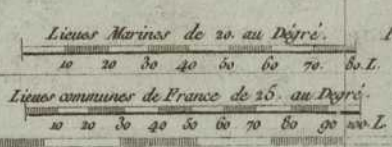 Lieues Marines de 20. au Dégré.
10 20 30 40 50 60 70. 80. L.
Lieues communes de France de 25. au Degré.
10 20 30 40 50 60 70 80 90 100. L.